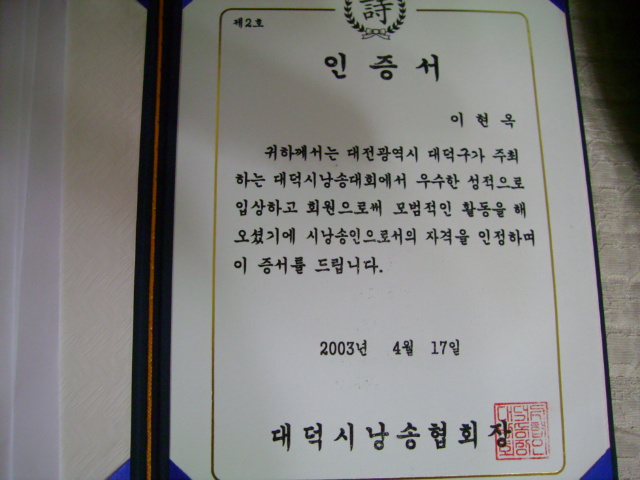 詩
제2호
인증서
이현옥
귀하께서는 대전광역시 대덕구가 주최
하는 대덕시낭송대회에서 우수한 성적으로
입상하고 회원으로써 모범적인 활동을 해
오셨기에 시낭송인으로서의 자격을 인정하며
이 증서를 드립니다.
2003년 4월 17일
대덕시낭송협회장